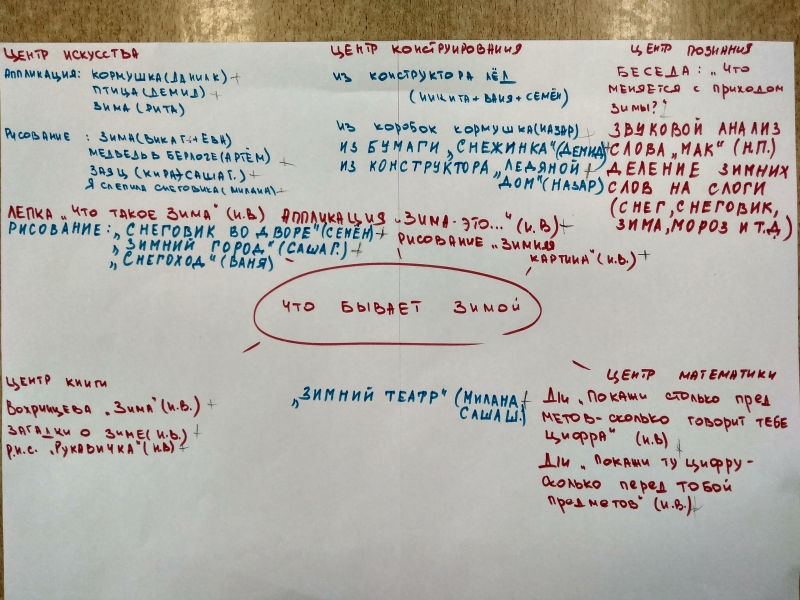 ЦЕНТР ИСКУССТВА
АППЛИКАЦИЯ: КОРМУШКА (ДАНИЛ К) +
ПТИЦА (ДЕМИД) +
ЗИМА (РИТА)
РИСОВАНИЕ : ЗИМА (ВИКА Г. + ЕВА)
МЕДВЕДЬ В БЕРЛОГЕ (АРТЁМ) +
ЗАЯЦ (КИРА)+САША Г.) +
Я СЛЕПИЛА СНЕГОВИКА (МИЛАНА) +
ЦЕНТР КОНСТРУИРОВАНИЯ
ИЗ КОНСТРУКТОРА ЛЁД +
(НИКИТА + ВАНЯ + СЕМЁН)
ИЗ КОРОБОК КОРМУШКА (НАЗАР)
ИЗ БУМАГИ „СНЕЖИНКА" (ДЕМИД)
ИЗ КОНСТРУКТОРА „ЛЕДЯНОЙ +
ДОМ" (НАЗАР)
ЦЕНТР ПОЗНАНИЯ
БЕСЕДА: „ЧТО
МЕНЯЕТСЯ С ПРИХОДОМ
ЗИМЫ?" +
ЗВУКОВОЙ АНАЛИЗ
СЛОВА „МАК" (Н.П.)
ДЕЛЕНИЕ ЗИМНИХ
СЛОВ НА СЛОГИ
(СНЕГ, СНЕГОВИК,
ЗИМА, МОРОЗ И Т.Д) +
ЛЕПКА „ЧТО ТАКОЕ ЗИМА" (И.В) АППЛИКАЦИЯ „ЗИМА-ЭТО..." (И.В) +
РИСОВАНИЕ: „СНЕГОВИК ВО ДВОРЕ" (СЕМЁН) +
„ЗИМНИЙ ГОРОД" (САША Г.) +
„СНЕГОХОД" (ВАНЯ) +
РИСОВАНИЕ „ЗИМНЯЯ
КАРТИНА" (И.В.) +
ЧТО БЫВАЕТ ЗИМОЙ
ЦЕНТР КНИГИ
ВОХРИНЦЕВА „ЗИМА" (И.В.) +
ЗАГАДКИ О ЗИМЕ (И.В.) +
Р.Н.С. „РУКАВИЧКА" (И.В) +
„ЗИМНИЙ ТЕАТР" (МИЛАНА, +
САША Ш.)
ЦЕНТР МАТЕМАТИКИ
Д/И „ПОКАЖИ СТОЛЬКО ПРЕД
МЕТОВ-СКОЛЬКО ГОВОРИТ ТЕБЕ
ЦИФРА" (И.В) +
Д/И „ПОКАЖИ ТУ ЦИФРУ-
СКОЛЬКО ПЕРЕД ТОБОЙ
ПРЕДМЕТОВ" (И.В.) +